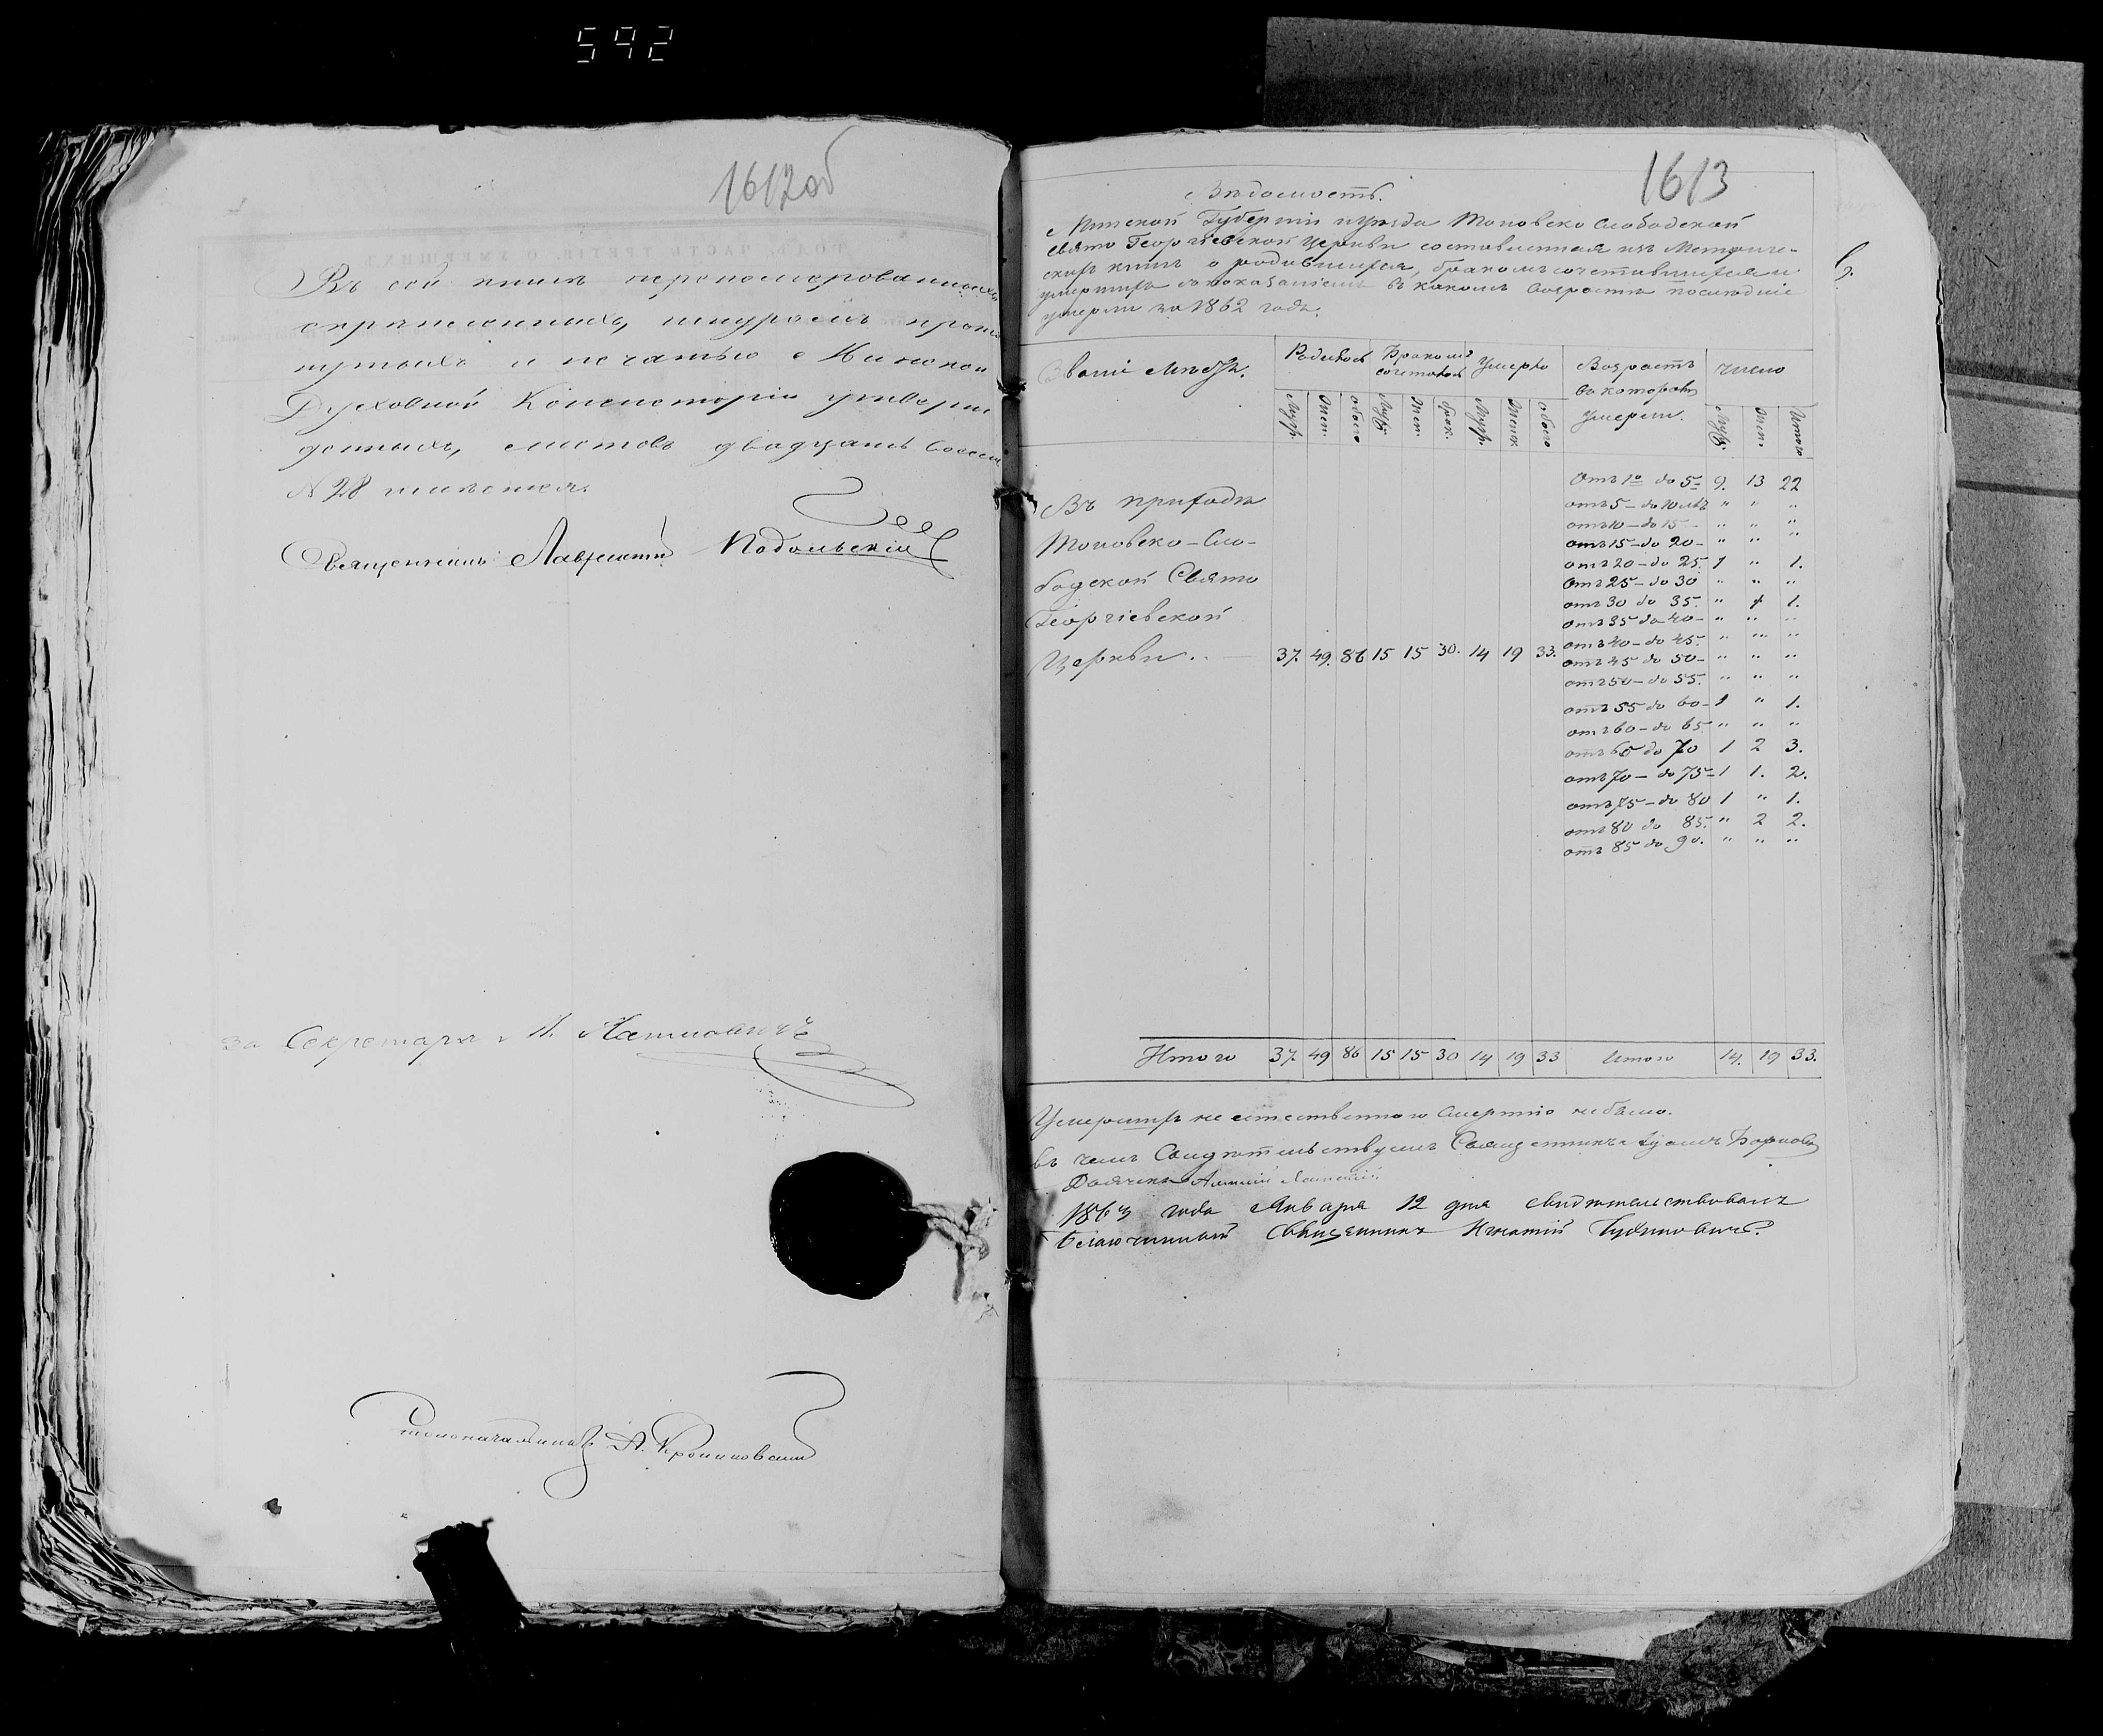 592
1612об
Въ сей книгѣ перенумерованныхъ
скрѣпленныхъ, шнуромъ прошну-
тыхъ и печатью Минской
Духовной Консисторіи утверж
денныхъ, листовъ двадцать восемь
№ 28 имѣется.
Священникъ Лаврентій Подольскій
За Секретаря
Столоначальникъ А.
1613
Вѣдомость.
Минской Губерніи и уѣзда Слободской
Свято Георгіевской Церкви составленная изъ Метриче-
скихъ книгъ о родившихся, бракомъ сочетавшихся и
умершихъ съ показаніемъ въ какомъ возрастѣ послѣдніе
умерли за 1862 годъ.
Званіе Мѣстъ. Родилось Бракомъ сочеталось Умерло Возрастъ въ которомъ умерли. число
Муж. Жен. обоего Муж. Жен. брак. Муж. Женск обоего Муж. Жен. Итого
Отъ 1го до 5- 9. 13 22
отъ 5 - до 10 лѣтъ " " "
отъ 10 - до 15 - " " "
отъ 15 - до 20 - " " "
отъ 20 - до 25. 1 " 1.
отъ 25 - до 30 " " "
отъ 30 до 35. " 1 1.
отъ 35 до 40 - " " "
отъ 40 - до 45. " " "
отъ 45 до 50 - " " "
отъ 50 - до 55. " " "
отъ 55 до 60 - 1 " 1.
отъ 60 - до 65 " " "
отъ 65 до 70 1 2 3.
отъ 70 - до 75 - 1 1. 2.
отъ 75 - до 80 1 " 1.
отъ 80 до 85. " 2 2.
отъ 85 до 90. " " "
Въ приходѣ
Сло-
бодской Свято
Георгіевской
Церкви. 37. 49. 86 15 15 30. 14 19 33.
Итого 37. 49 86 15 15 30 14 19 33 Итого 14. 19 33.
Умершихъ не естественною смертію не было.
въ чемъ Свидѣтельствуемъ Священникъ
Дьячекъ
1863 года Января 12 дня свидѣтельствовалъ
Благочинный Священникъ Игнатій